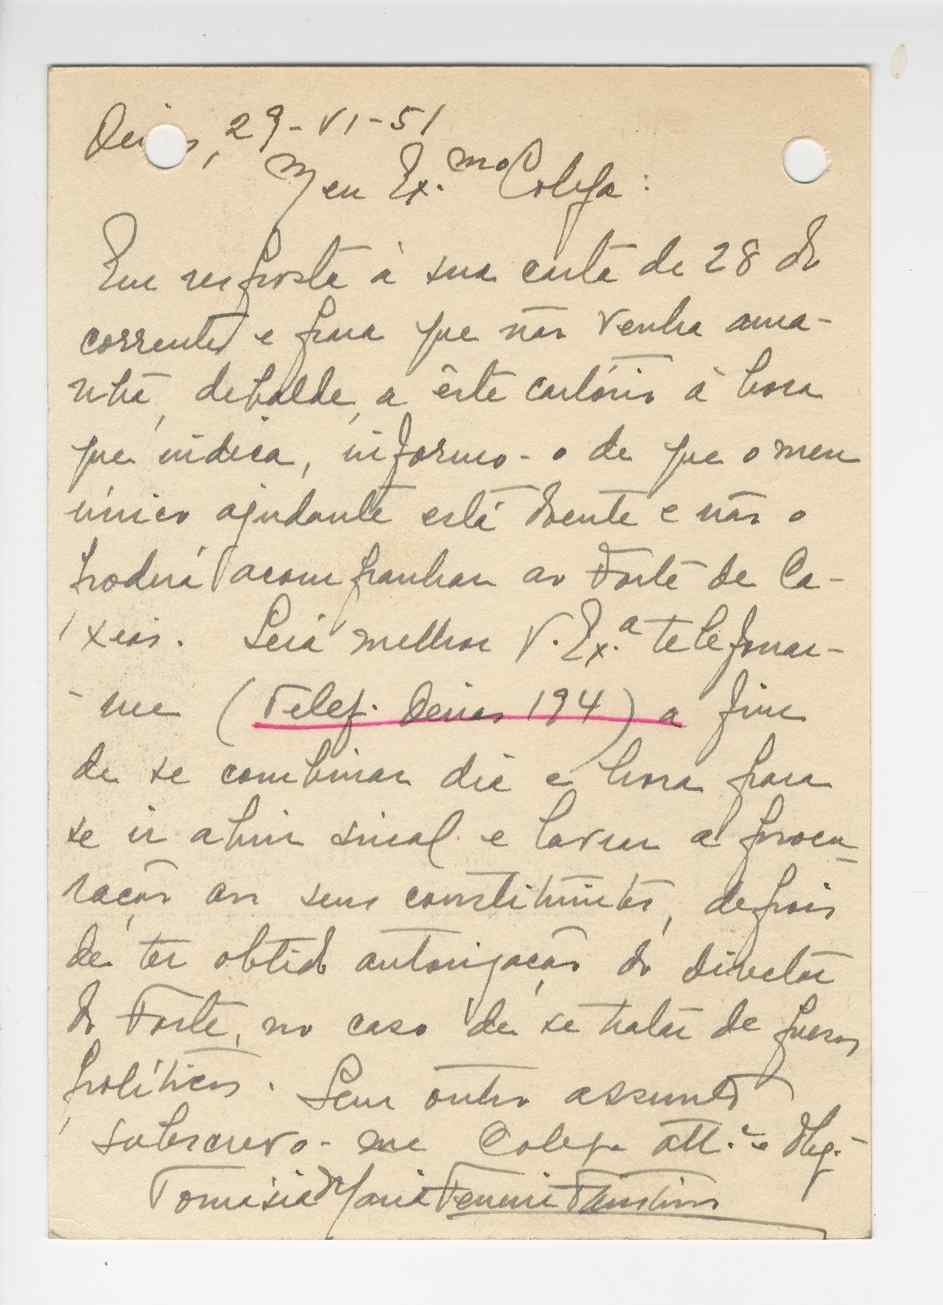 Oeiras, 29-VI-51
Meu Ex.mo Colega:
Em resposta à sua carta de 28 do
corrente e para que não venha ama-
nhã, debalde, a êste cartório à hora
que indica, informo-o de que o meu
único ajudante está doente e não o
poderá acompanhar ao Forte de Ca-
xias. Será melhor V. Ex.a telefonar-
-me (Telef. Oeiras 194) a fim
de se combinar dia e hora para
se ir abrir sinal e lavrar a procu-
ração aos seus constituintes, depois
de ter obtido autorização do director
do Forte, no caso de se tratar de presos
políticos. Sem outro assunto
subscrevo-me Colega att.º e Obg.
Tomásia Maria